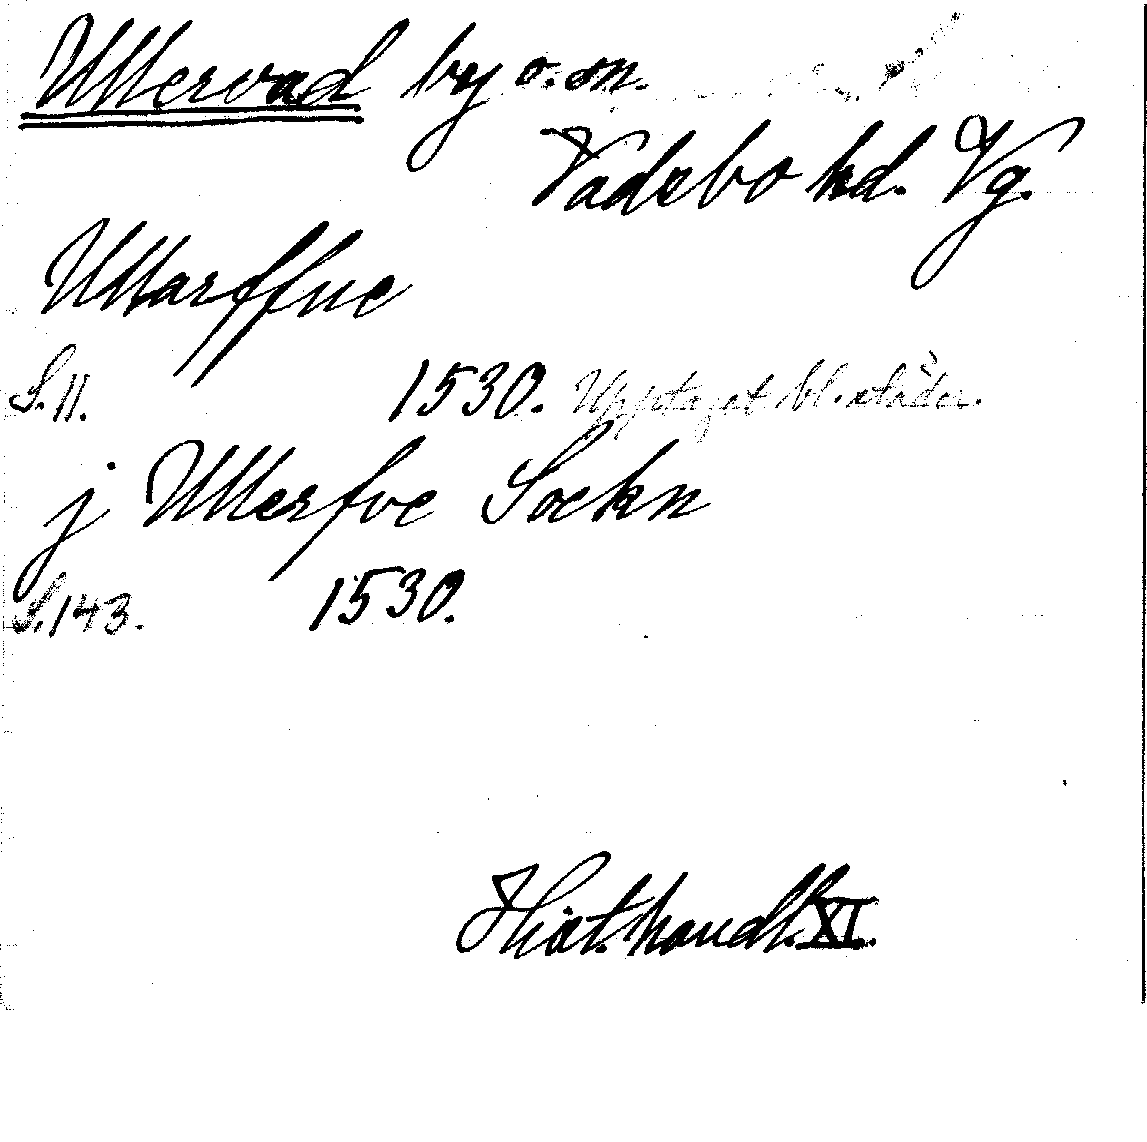 Ullervad by o. sn.
Vadsbo hd. Vg.
Ullarffue
S. 11. 1530. Upptaget bl. städer.
j Ullerfve Sockn
S. 143. 1530.
Hist. handl. XI.